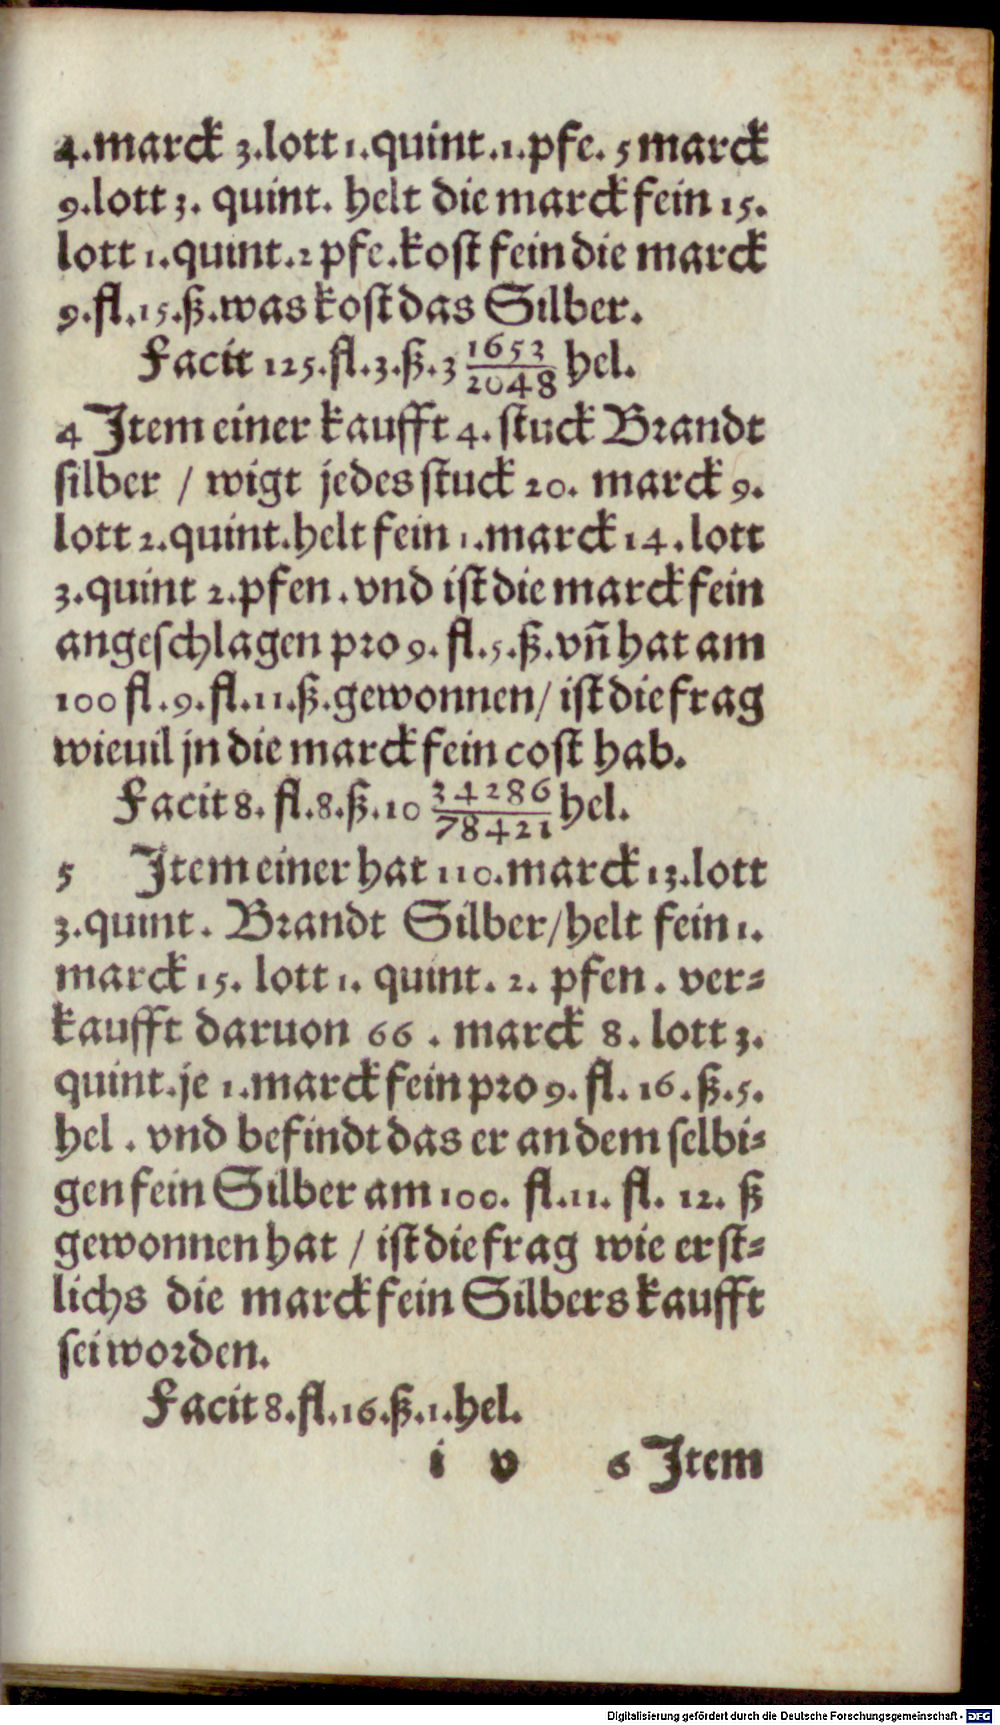 4.marck 3.lott 1.quint.1.pfe. 5 marck
9.lott 3. quint. helt die marck fein 15.
lott 1.quint.2 pfe.kost fein die marck
9.fl.15.ß.was kost das Silber.
Facit 125.fl.3.ß.3 1653/2048 hel.
4 Item einer kaufft 4. stuck Brandt
silber / wigt jedes stuck 20. marck 9.
lott 2.quint.helt fein 1.marck 14.lott
3.quint 2.pfen.vnd ist die marck fein
angeschlagen pro 9. fl.5.ß.vñ hat am
100 fl.9.fl.11.ß.gewonnen/ ist die frag
wieuil jn die marck fein cost hab.
Facit 8. fl.8.ß.10 34286/78421 hel.
5 Item einer hat 110.marck 13.lott
3.quint. Brandt Silber/helt fein 1.
marck 15. lott 1. quint. 2. pfen. ver⸗
kaufft daruon 66. marck 8. lott 3.
quint.je 1.marck fein pro 9. fl. 16.ß.5.
hel. vnd befindt das er an dem selbi⸗
gen fein Silber am 100. fl.11. fl. 12. ß
gewonnen hat / ist die frag wie erst⸗
lichs die marck fein Silbers kaufft
sei worden.
Facit 8.fl.16.ß.1.hel.
i v 6 Item
Digitalisierung gefördert durch die Deutsche Forschungsgemeinschaft - DFG